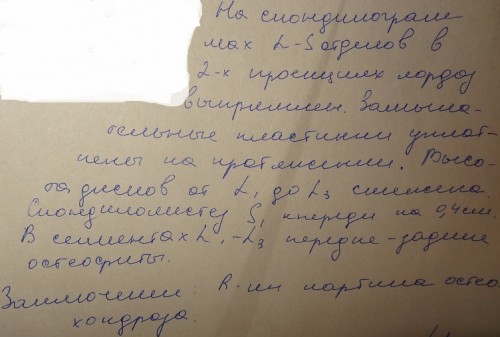 На спондилограм
мах L-S отделов в
2-х проекциях лордоз
выпрямлен. Замыка-
тельные пластинки уплот-
нены на протяжении. Высо-
та дисков от L₁ до L₃ снижена.
Спондилолистез S₁ кпереди на 0,4 см.
В сегментах L₁-L₃ передне-задние
остеофиты.
Заключение: R-ки картина остео
хондроза.